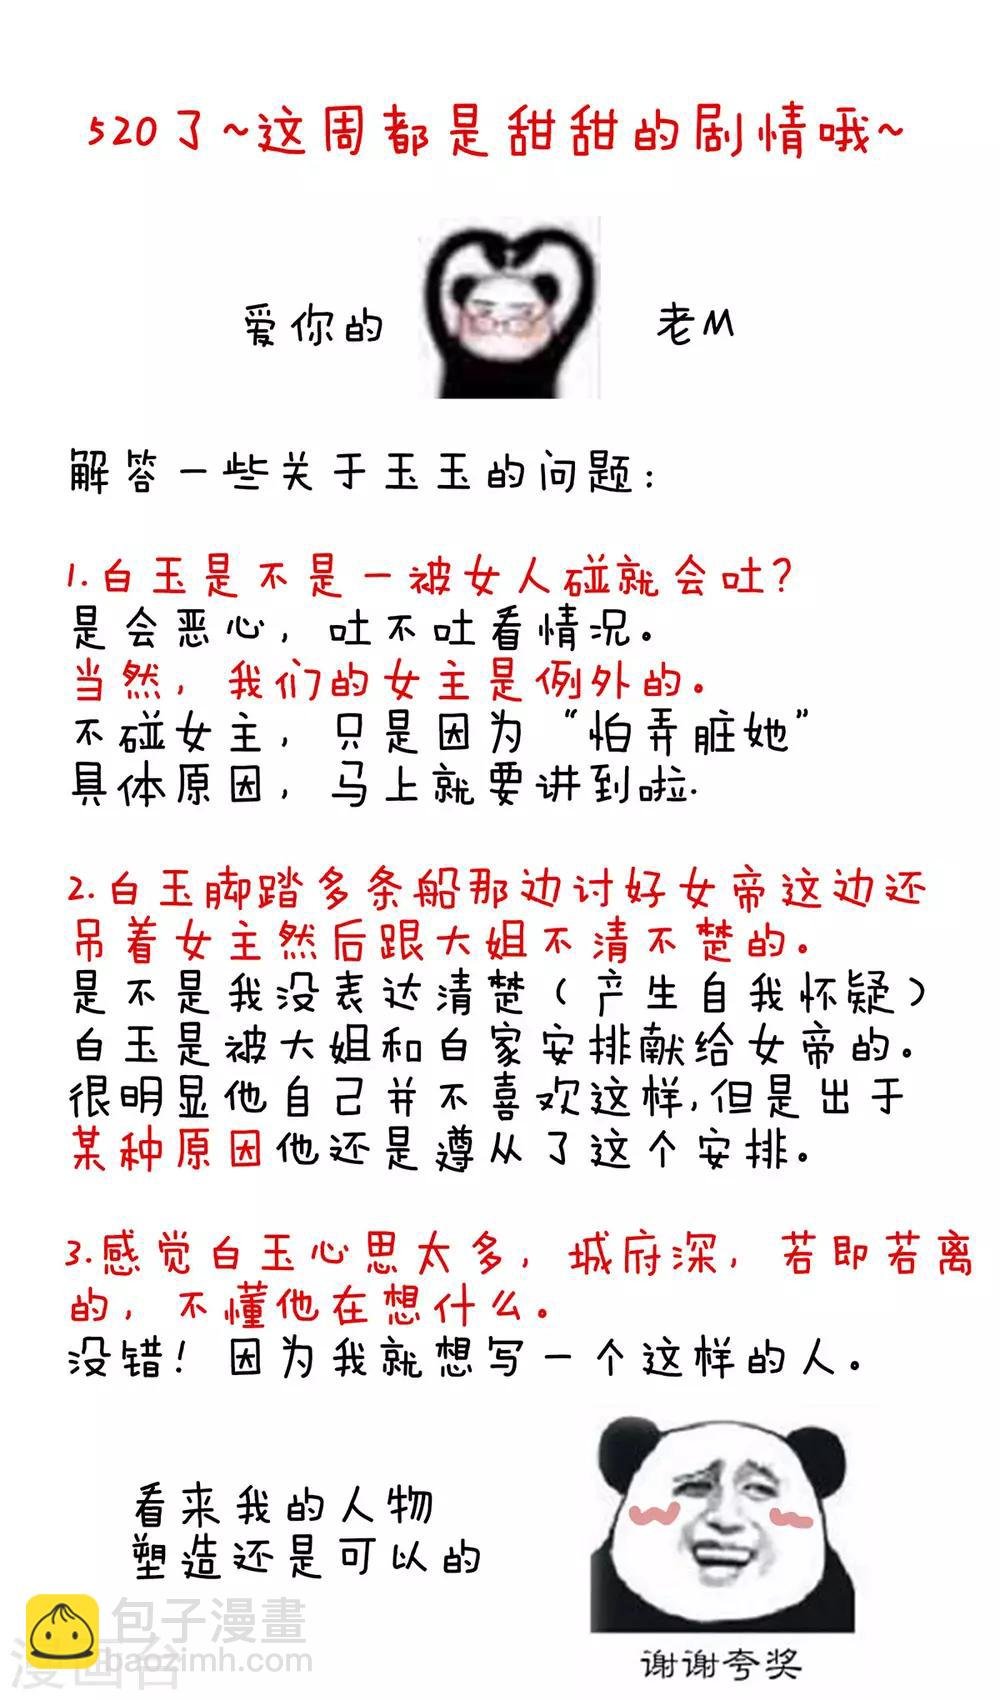 520了~这周都是甜甜的剧情哦~
爱你的 老M
解答一些关于玉玉的问题:
1.白玉是不是一被女人碰就会吐?
是会恶心,吐不吐看情况。
当然,我们的女主是例外的。
不碰女主,只是因为“怕弄脏她”
具体原因,马上就要讲到啦.
2.白玉脚踏多条船那边讨好女帝这边还
吊着女主然后跟大姐不清不楚的。
是不是我没表达清楚(产生自我怀疑)
白玉是被大姐和白家安排献给女帝的。
很明显他自己并不喜欢这样,但是出于
某种原因他还是遵从了这个安排。
3.感觉白玉心思太多,城府深,若即若离
的,不懂他在想什么。
没错!因为我就想写一个这样的人。
看来我的人物
塑造还是可以的
谢谢夸奖
包子漫畫
baozimh.com
漫画台